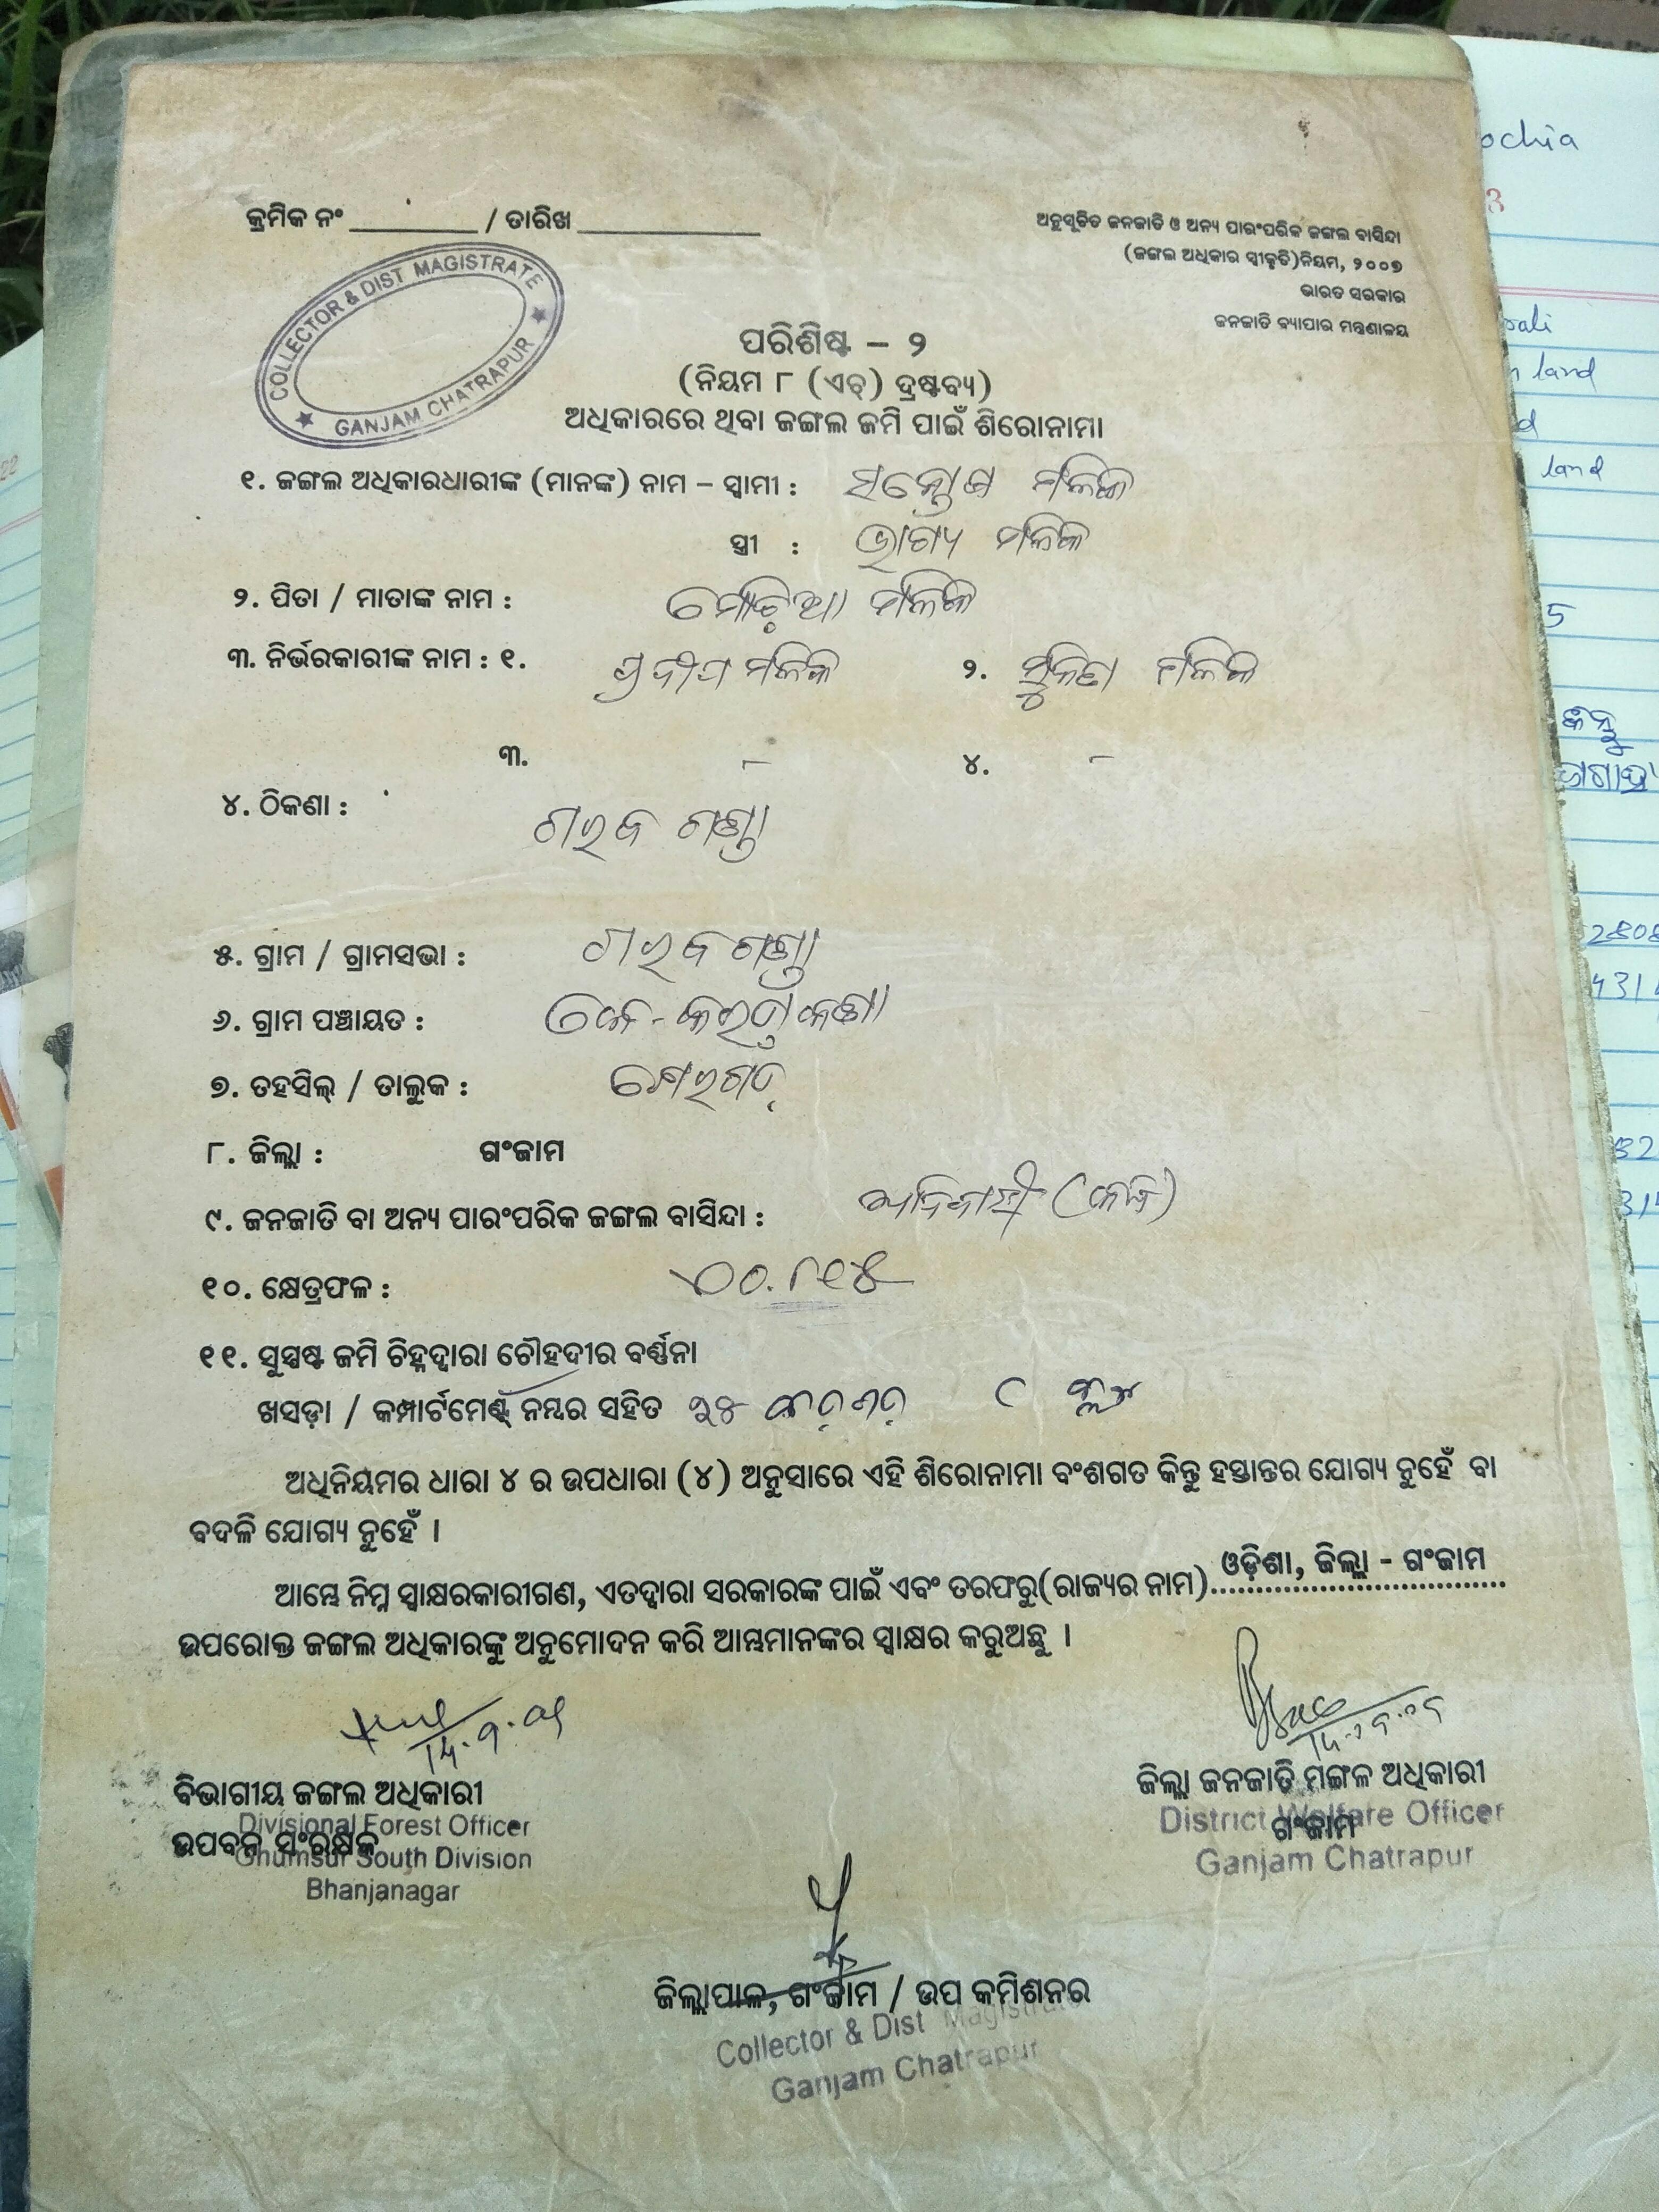 କ୍ରମିକ ନଂ ________ / ତାରିଖ ____________
ଅନୁସୂଚିତ ଜନଜାତି ଓ ଅନ୍ୟ ପାରଂପରିକ ଜଙ୍ଗଲ ବାସିନ୍ଦା
(ଜଙ୍ଗଲ ଅଧିକାର ସ୍ୱୀକୃତି)ନିୟମ, ୨୦୦୭
ଭାରତ ସରକାର
ଜନଜାତି ବ୍ୟାପାର ମନ୍ତ୍ରଣାଳୟ
COLLECTOR & DIST MAGISTRATE
GANJAM CHATRAPUR
ପରିଶିଷ୍ଟ – ୨
(ନିୟମ ୮ (ଏଚ୍) ଦ୍ରଷ୍ଟବ୍ୟ)
ଅଧିକାରରେ ଥିବା ଜଙ୍ଗଲ ଜମି ପାଇଁ ଶିରୋନାମା
୧. ଜଙ୍ଗଲ ଅଧିକାରଧାରୀଙ୍କ (ମାନଙ୍କ) ନାମ – ସ୍ୱାମୀ : ସନ୍ତୋଷ ମଳିକ
ସ୍ତ୍ରୀ : ଭାଗ୍ୟ ମଳିକ
୨. ପିତା / ମାତାଙ୍କ ନାମ : ମୋଚିଆ ମଳିକ
୩. ନିର୍ଭରକାରୀଙ୍କ ନାମ : ୧. ପ୍ରଦୀପ ମଳିକ ୨. ମଳିକ
୩. – ୪. –
୪. ଠିକଣା :
୫. ଗ୍ରାମ / ଗ୍ରାମସଭା :
୬. ଗ୍ରାମ ପଞ୍ଚାୟତ :
୭. ତହସିଲ୍ / ତାଲୁକ :
୮. ଜିଲ୍ଲା : ଗଂଜାମ
୯. ଜନଜାତି ବା ଅନ୍ୟ ପାରଂପରିକ ଜଙ୍ଗଲ ବାସିନ୍ଦା : ଆଦିବାସୀ (କନ୍ଧ)
୧୦. କ୍ଷେତ୍ରଫଳ :
୧୧. ସୁସ୍ପଷ୍ଟ ଜମି ଚିହ୍ନଦ୍ୱାରା ଚୌହଦୀର ବର୍ଣ୍ଣନା
ଖସଡ଼ା / କମ୍ପାର୍ଟମେଣ୍ଟ୍ ନମ୍ବର ସହିତ
ଅଧିନିୟମର ଧାରା ୪ ର ଉପଧାରା (୪) ଅନୁସାରେ ଏହି ଶିରୋନାମା ବଂଶଗତ କିନ୍ତୁ ହସ୍ତାନ୍ତର ଯୋଗ୍ୟ ନୁହେଁ ବା
ବଦଳି ଯୋଗ୍ୟ ନୁହେଁ ।
ଆମ୍ଭେ ନିମ୍ନ ସ୍ୱାକ୍ଷରକାରୀଗଣ, ଏତଦ୍ୱାରା ସରକାରଙ୍କ ପାଇଁ ଏବଂ ତରଫରୁ(ରାଜ୍ୟର ନାମ) ଓଡ଼ିଶା, ଜିଲ୍ଲା - ଗଂଜାମ
ଉପରୋକ୍ତ ଜଙ୍ଗଲ ଅଧିକାରଙ୍କୁ ଅନୁମୋଦନ କରି ଆମ୍ଭମାନଙ୍କର ସ୍ୱାକ୍ଷର କରୁଅଛୁ ।
ବିଭାଗୀୟ ଜଙ୍ଗଲ ଅଧିକାରୀ
Divisional Forest Officer
ଉପବନ ସଂରକ୍ଷକ
Ghumsur South Division
Bhanjanagar
ଜିଲ୍ଲା ଜନଜାତି ମଙ୍ଗଳ ଅଧିକାରୀ
District Welfare Officer
ଗଂଜାମ
Ganjam Chatrapur
ଜିଲ୍ଲାପାଳ, ଗଂଜାମ / ଉପ କମିଶନର
Collector & Dist Magistrate
Ganjam Chatrapur
land
land